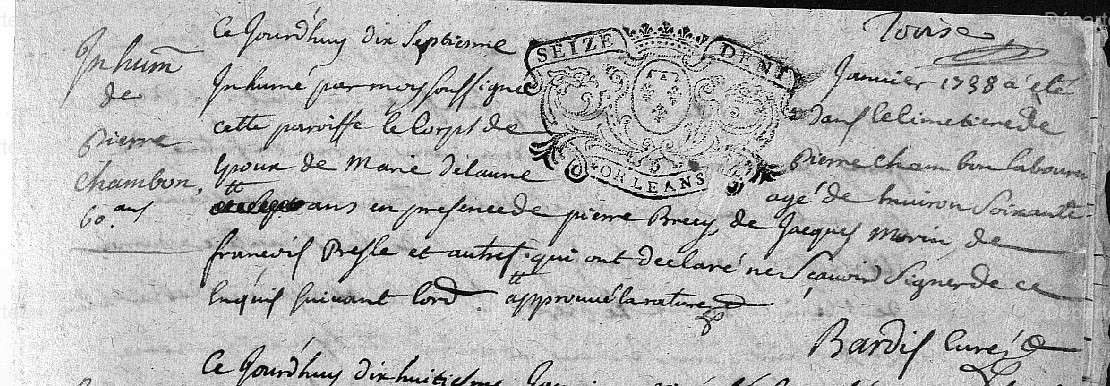 Toise
Inhum̄
de
pierre
chambon,
60. ans
SEIZE DENI
ORLEANS
Ce Jourdhuy dix Septieme Janvier 1738 a été
Inhumé par moy soussigné dans le Cimetiere de
cette paroisse le Corps de pierre chambon laboureur
Epoux de Marie delaune agé de Environ Soixante
ans en presence de pierre Brecy, de Jacques Morin, de
francois Presle et autres qui ont declaré ne Sçavoir Signer de ce
Enquis suivant lord approuvé la rature
Bardis Curé
Ce Jourdhuy dix huitieme